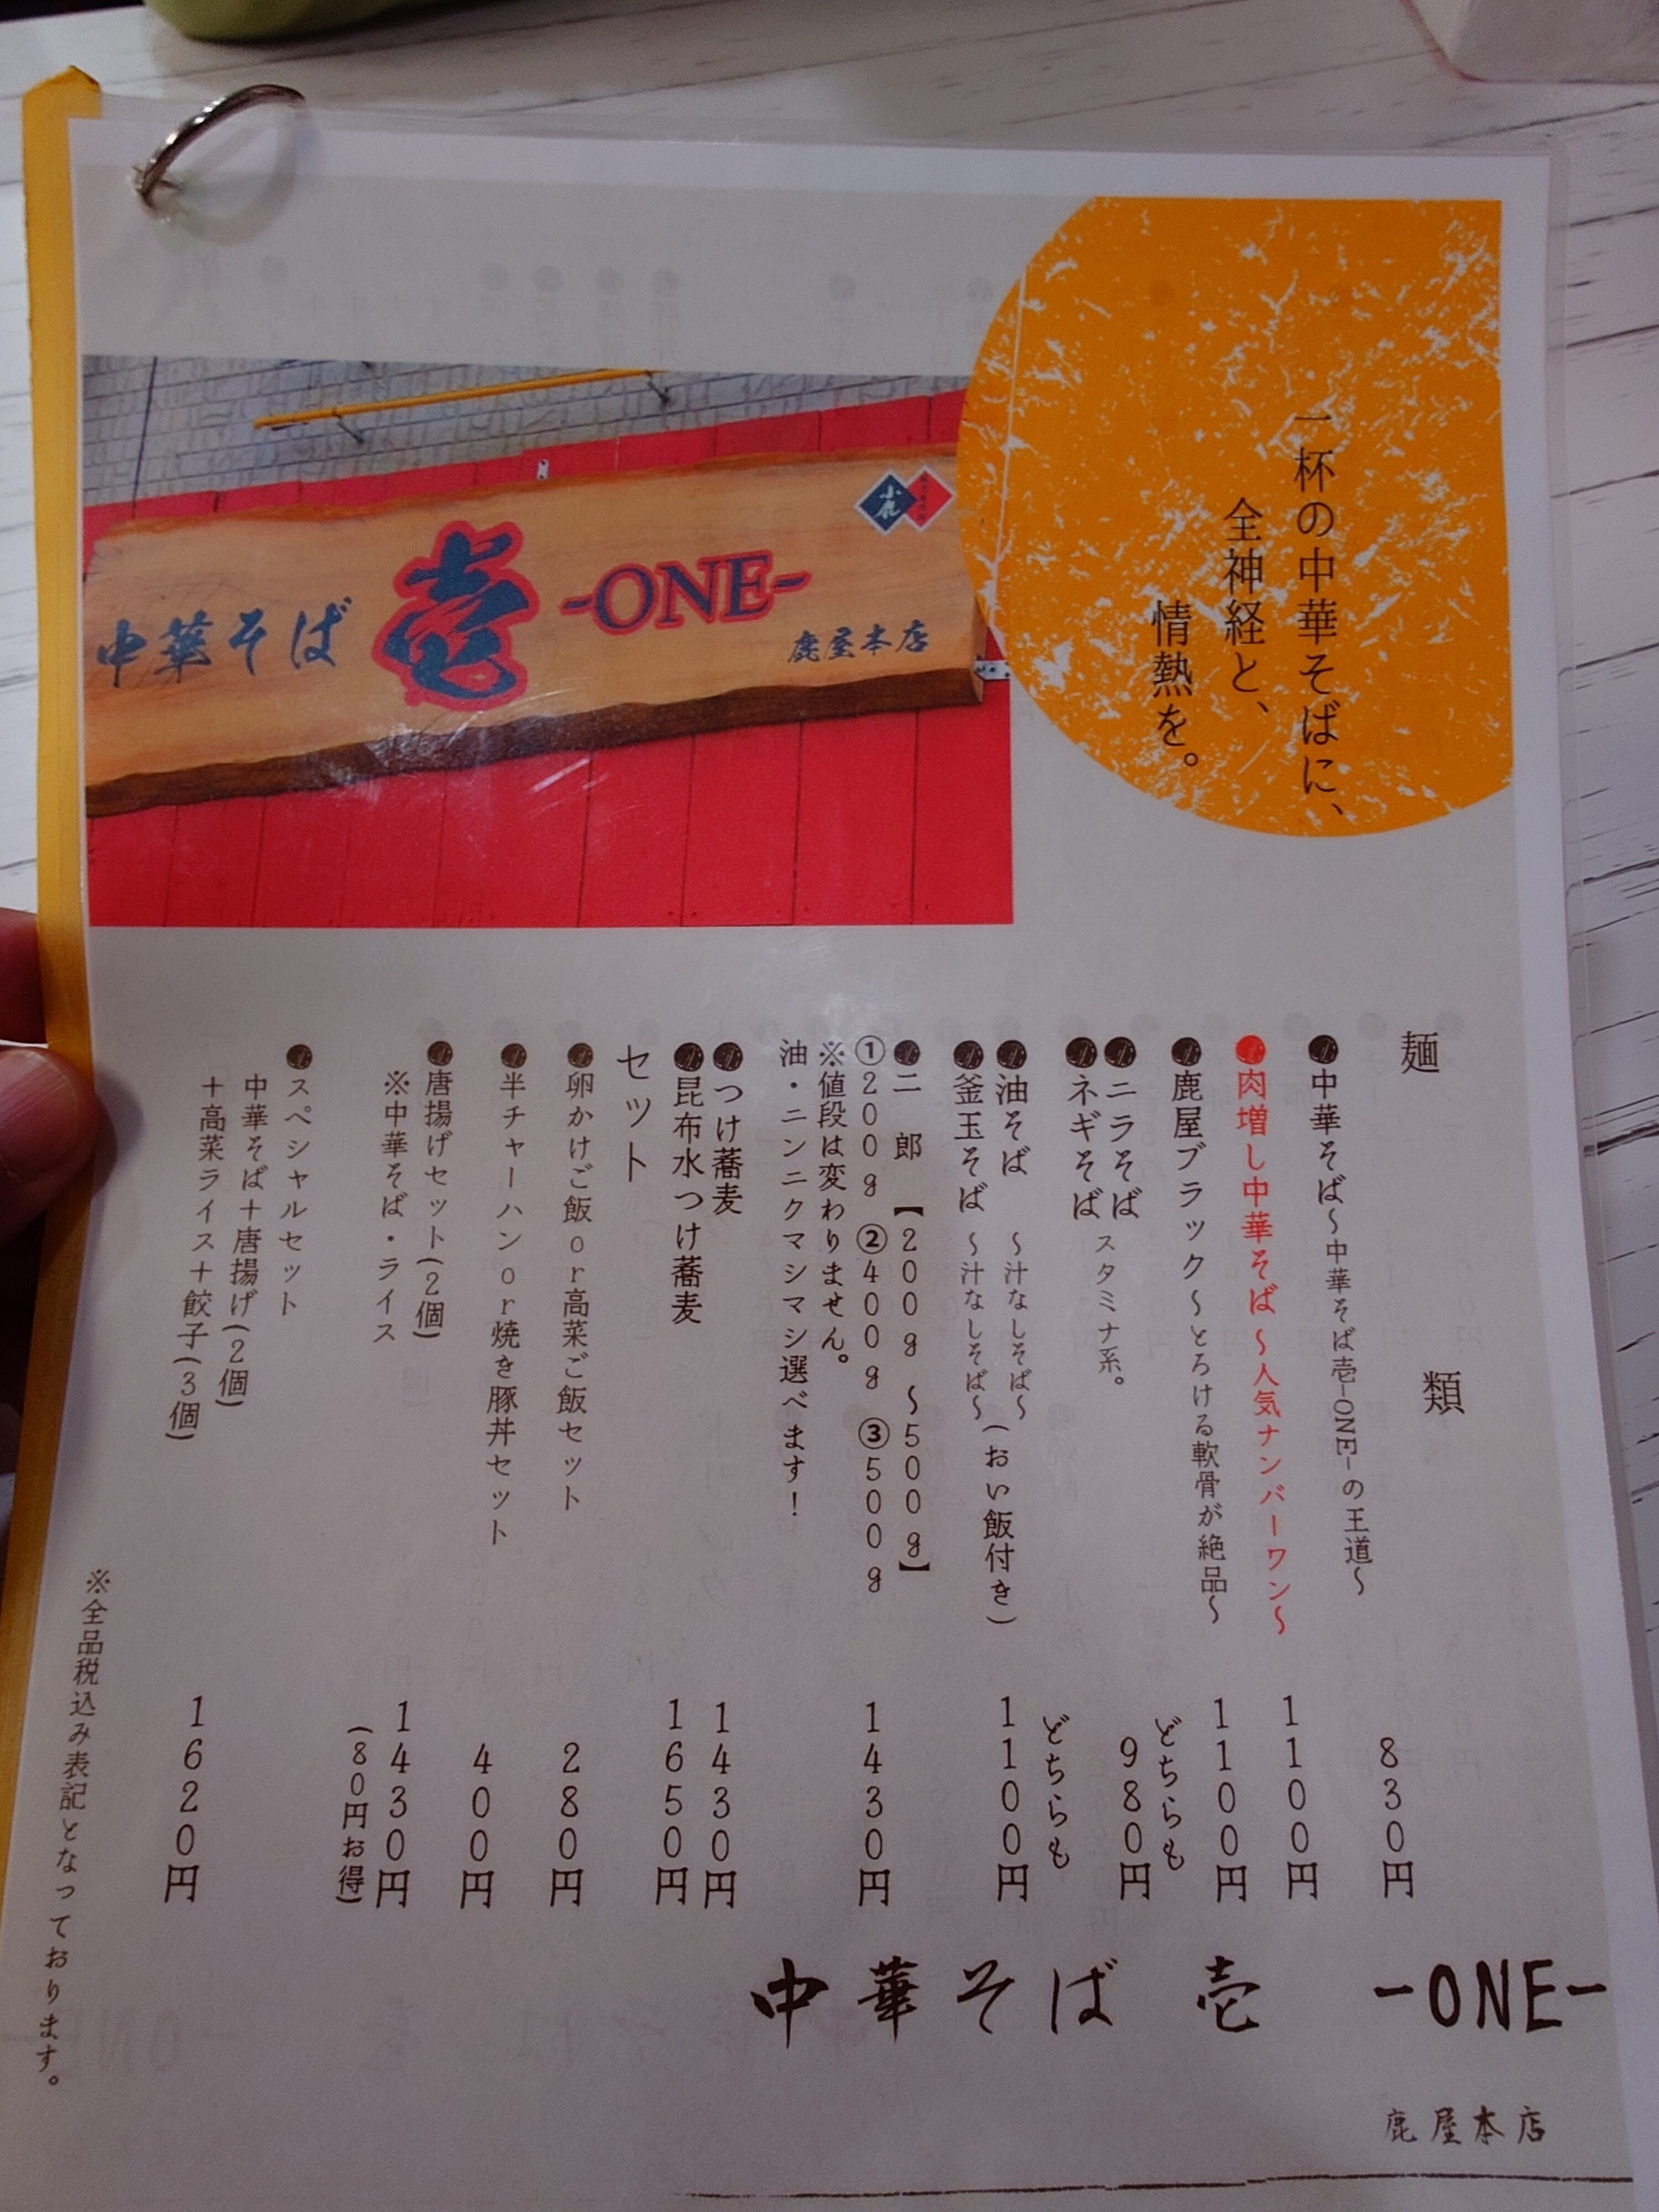 一杯の中華そばに、
全神経と、
情熱を。
小鹿
中華そば 壱 -ONE-
鹿屋本店
麺 類
●中華そば~中華そば壱-ONE-の王道~ 830円
●肉増し中華そば~人気ナンバーワン~ 1100円
●鹿屋ブラック~とろける軟骨が絶品~ 1100円
どちらも
●ニラそば スタミナ系。 980円
●ネギそば
どちらも
●油そば ~汁なしそば~ 1100円
●釜玉そば ~汁なしそば~(おい飯付き)
●二 郎 【200g ~500g】
①200g ②400g ③500g 1430円
※値段は変わりません。
油・ニンニクマシマシ選べます!
●つけ蕎麦 1430円
●昆布水つけ蕎麦 1650円
セット
●卵かけご飯or高菜ご飯セット 280円
●半チャーハンor焼き豚丼セット 400円
●唐揚げセット(2個) 1430円
※中華そば・ライス (80円お得)
●スペシャルセット
中華そば+唐揚げ(2個)
+高菜ライス+餃子(3個) 1620円
※全品税込み表記となっております。
中華そば 壱 -ONE-
鹿屋本店